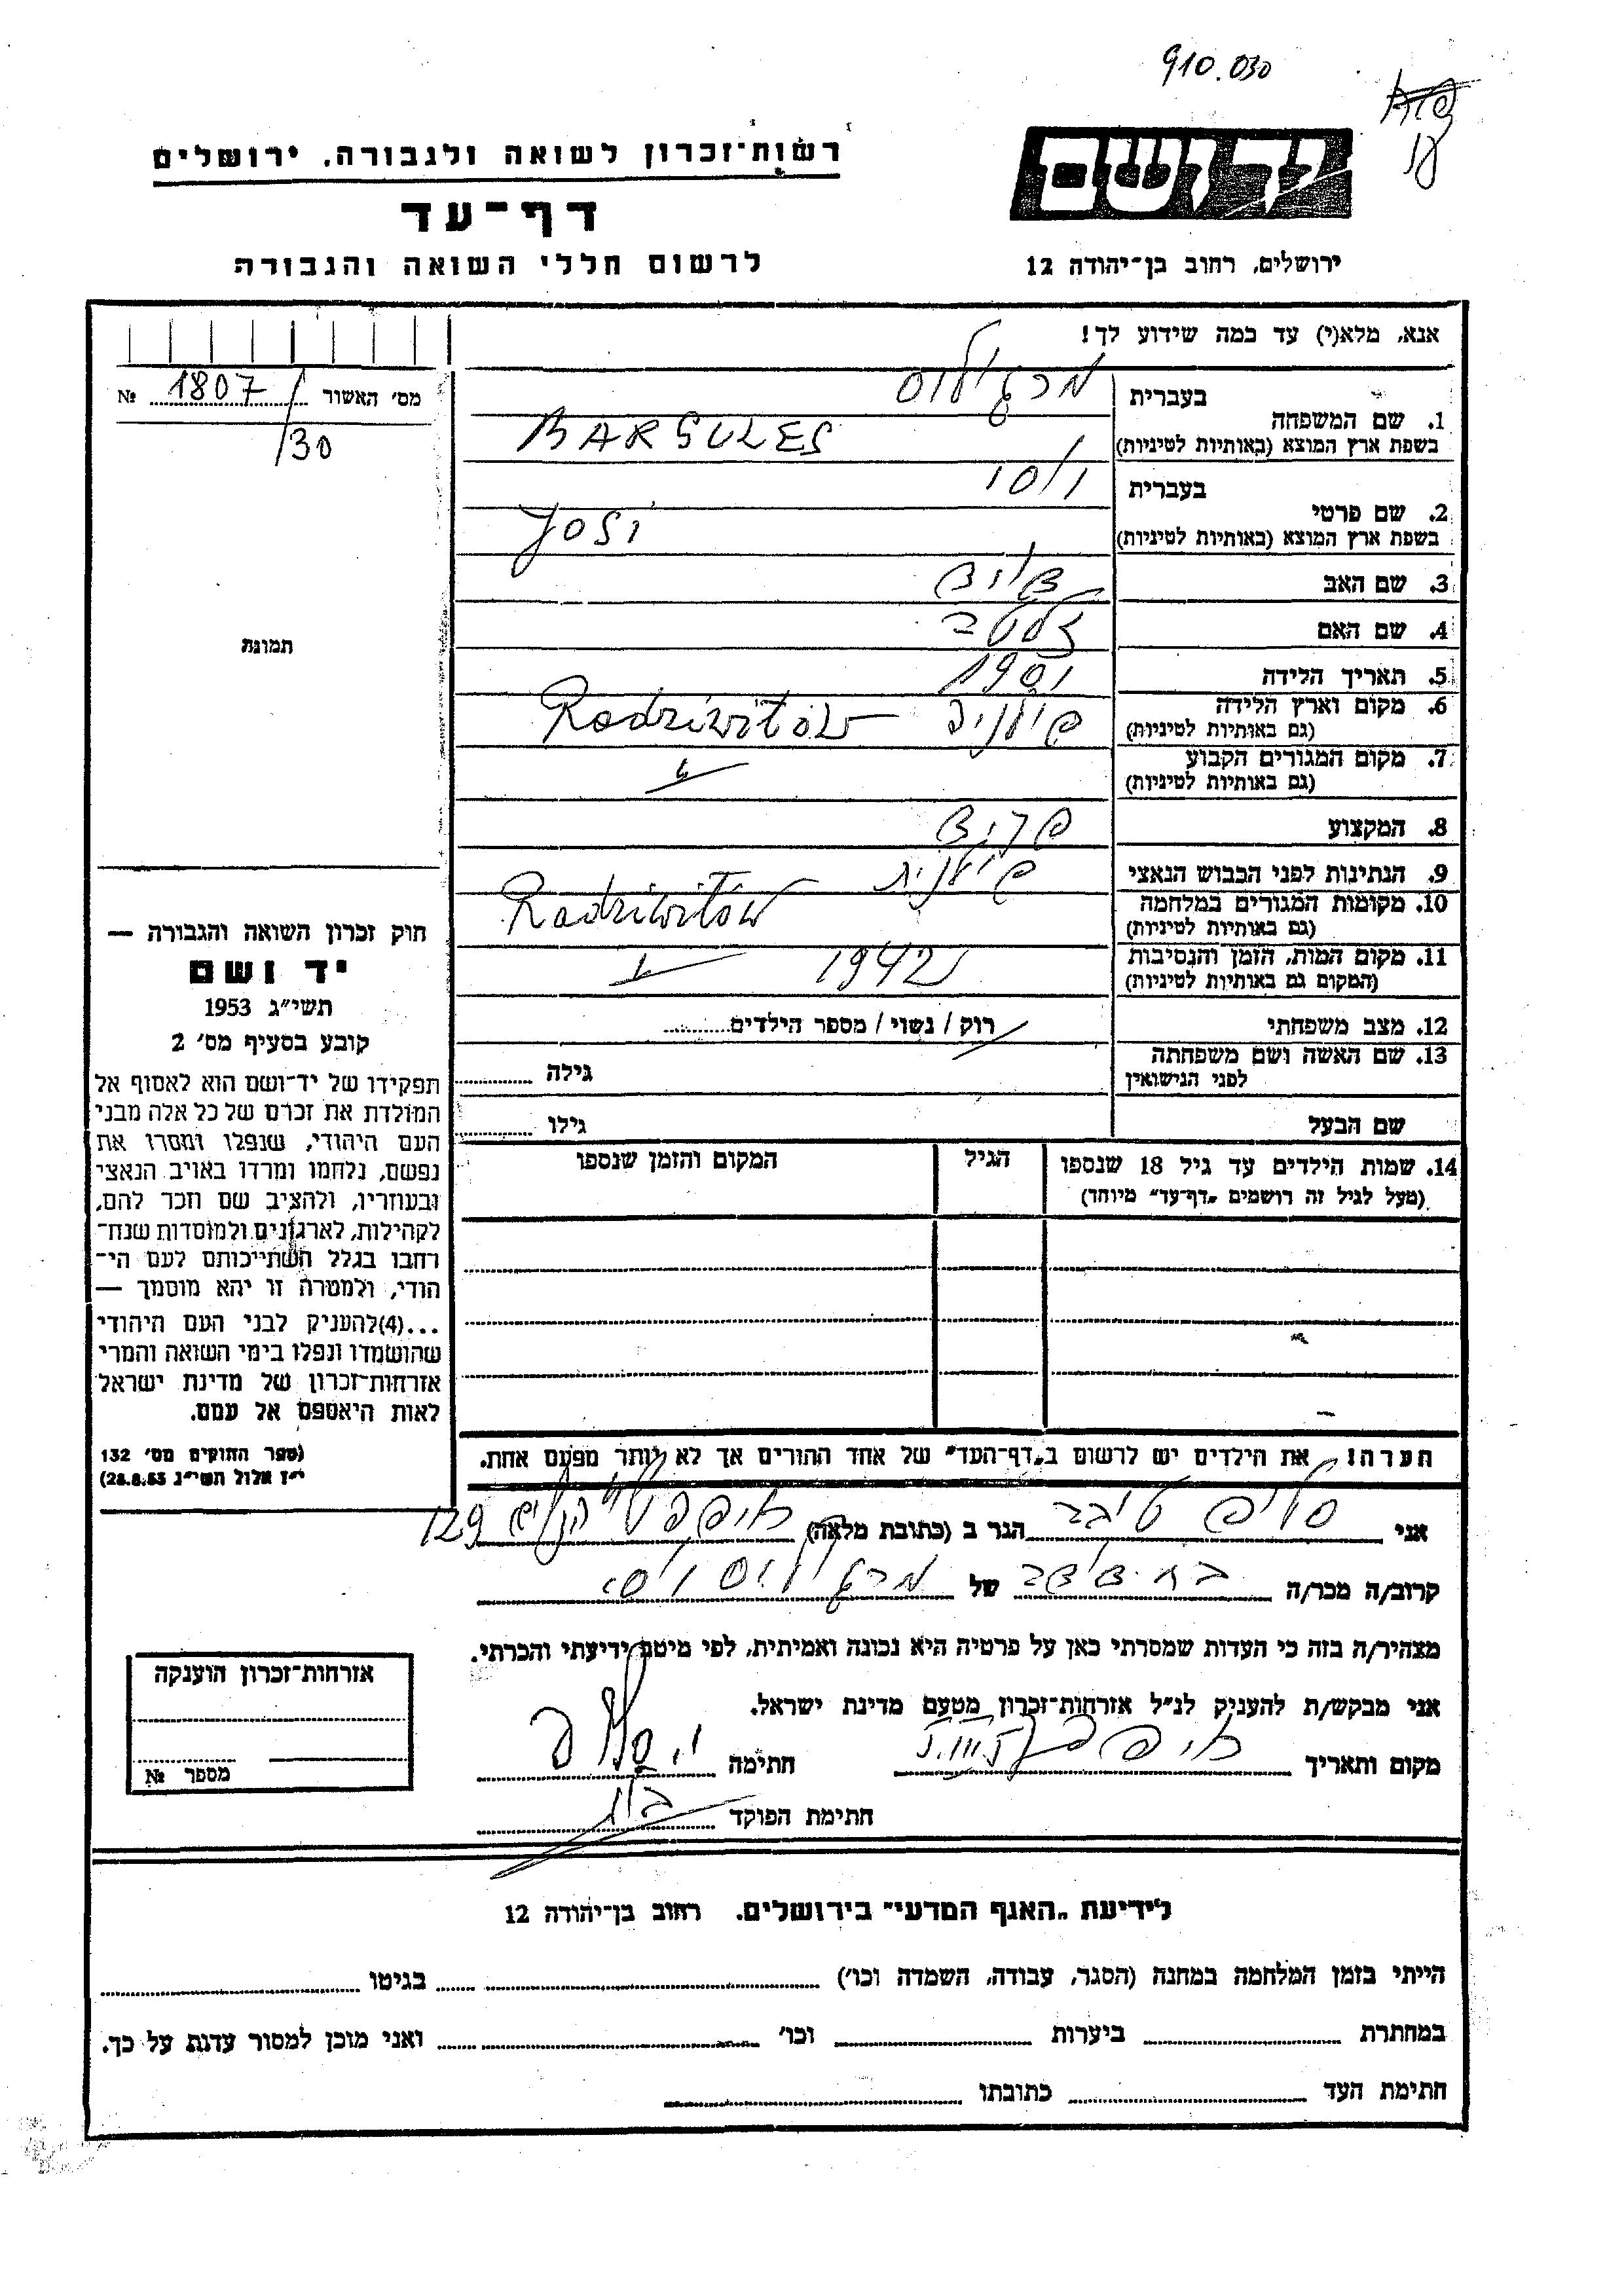 910.030
רשות־זכרון לשואה ולגבורה, ירושלים
יד ושם
דף־עד
לרשום חללי השואה והגבורה
ירושלים, רחוב בן־יהודה 12
אנא, מלא(י) עד כמה שידוע לך!
מס׳ האשור 1807 №
/30
1. שם המשפחה
בעברית
בשפת ארץ המוצא (באותיות לטיניות) BARGULES
2. שם פרטי
בעברית יוסי
בשפת ארץ המוצא (באותיות לטיניות) Josi
3. שם האב
4. שם האם
5. תאריך הלידה 1901
6. מקום וארץ הלידה
(גם באותיות לטיניות) פולניה Radziwitów
7. מקום המגורים הקבוע
(גם באותיות לטיניות)
8. המקצוע
9. הנתינות לפני הכבוש הנאצי פולנית
10. מקומות המגורים במלחמה
(גם באותיות לטיניות) Radziwitów
11. מקום המות, הזמן והנסיבות
(המקום גם באותיות לטיניות) 1942
12. מצב משפחתי רוק / נשוי / מספר הילדים
13. שם האשה ושם משפחתה
לפני הנישואין גילה
שם הבעל גילו
14. שמות הילדים עד גיל 18 שנספו הגיל המקום והזמן שנספו
(מעל לגיל זה רושמים „דף־עד״ מיוחד)
הערה: את הילדים יש לרשום ב„דף־העד״ של אחד ההורים אך לא יותר מפעם אחת.
תמונה
חוק זכרון השואה והגבורה —
יד ושם
תשי״ג 1953
קובע בסעיף מס׳ 2
תפקידו של יד־ושם הוא לאסוף אל
המולדת את זכרם של כל אלה מבני
העם היהודי, שנפלו ומסרו את
נפשם, נלחמו ומרדו באויב הנאצי
ובעוזריו, ולהציב שם וזכר להם,
לקהילות, לארגונים ולמוסדות שנח־
רחבו בגלל השתייכותם לעם הי־
הודי, ולמטרה זו יהא מוסמך —
...(4)להעניק לבני העם היהודי
שהושמדו ונפלו בימי השואה והמרי
אזרחות־זכרון של מדינת ישראל
לאות היאספם אל עמם.
(ספר החוקים מס׳ 132
י״ז אלול תשי״ג 28.8.53)
אני הגר ב (כתובת מלאה) 129
קרוב/ה מכר/ה של
מצהיר/ה בזה כי העדות שמסרתי כאן על פרטיה היא נכונה ואמיתית, לפי מיטב ידיעתי והכרתי.
אני מבקש/ת להעניק לנ״ל אזרחות־זכרון מטעם מדינת ישראל.
מקום ותאריך חתימה
חתימת הפוקד
אזרחות־זכרון הוענקה
מספר №
לידיעת „האגף המדעי״ בירושלים. רחוב בן־יהודה 12
הייתי בזמן המלחמה במחנה (הסגר, עבודה, השמדה וכו׳) בגיטו
במחתרת ביערות וכו׳ ואני מוכן למסור עדות על כך.
חתימת העד כתובתו